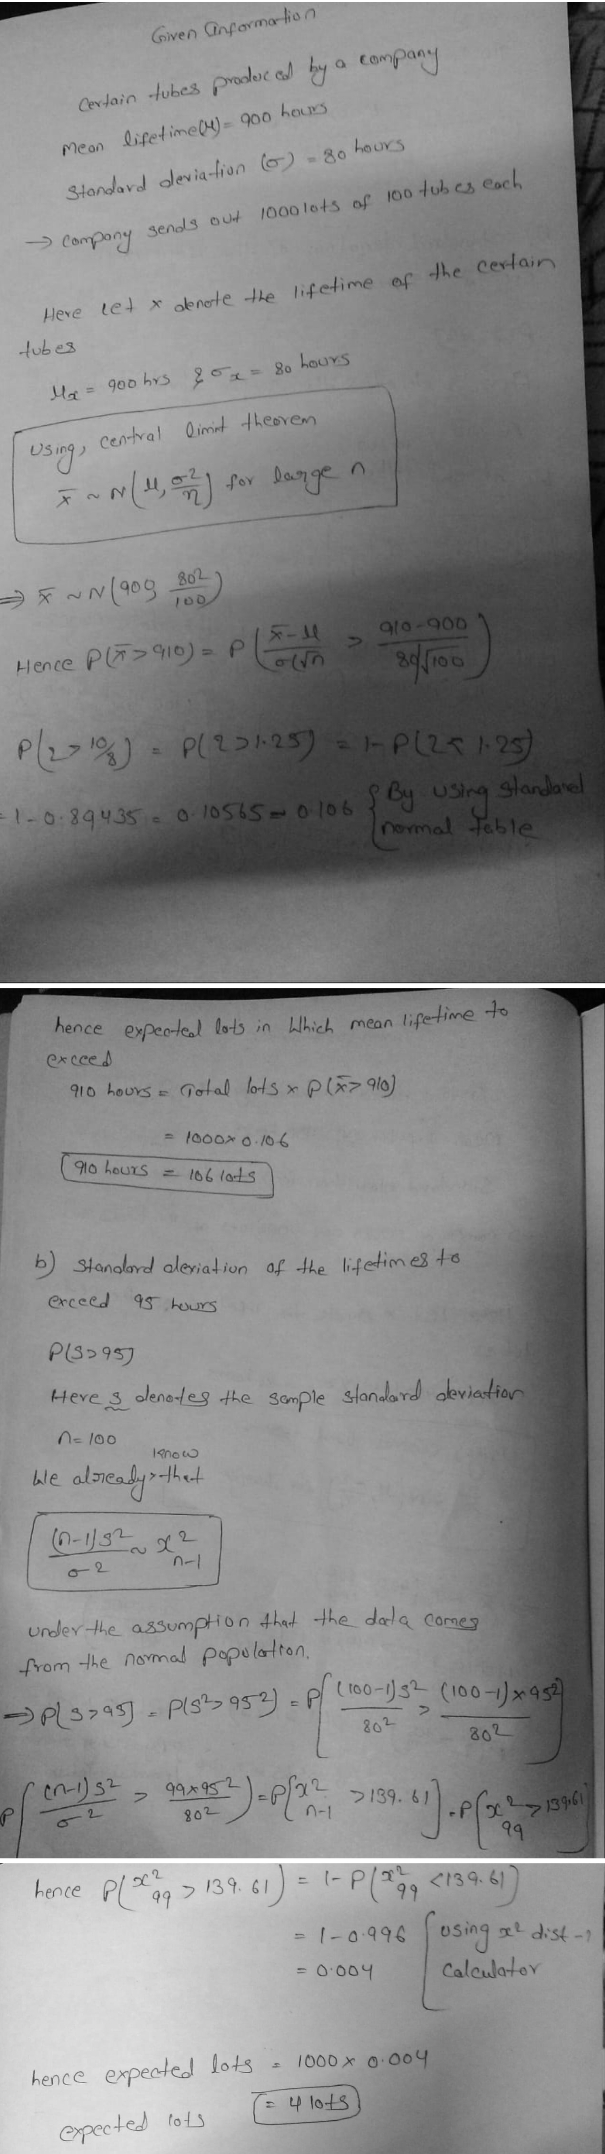 Given Information
Certain tubes produced by a company
Mean lifetime(μ) = 900 hours
Standard deviation (σ) = 80 hours
→ company sends out 1000 lots of 100 tubes each
Here let x denote the lifetime of the certain
tubes
μx = 900 hrs & σx = 80 hours
Using, central limit theorem
x̄ ~ N(μ, σ²/n) for large n
⇒ x̄ ~ N(900, 80²/100)
Hence P(x̄ > 910) = P( (x̄-μ)/(σ/√n) > (910-900)/(80/√100) )
P(z > 10/8) = P(z > 1.25) = 1 - P(z ≤ 1.25)
= 1 - 0.89435 = 0.10565 ≈ 0.106 { By using standard
normal table
hence expected lots in which mean lifetime to
exceed
910 hours = Total lots x P(x̄ > 910)
= 1000 x 0.106
910 hours = 106 lots
b) Standard deviation of the lifetimes to
exceed 95 hours
P(s > 95)
Here s denotes the sample standard deviation
n = 100
know
We already > that
(n-1)s²/σ² ~ x²n-1
under the assumption that the data comes
from the normal population.
⇒ P(s > 95) = P(s² > 95²) = P( (100-1)s²/80² > (100-1)x95²/80² )
P( (n-1)s²/σ² > 99x95²/80² ) = P(x²n-1 > 139.61) = P(x²99 > 139.61)
hence P(x²99 > 139.61) = 1 - P(x²99 < 139.61)
= 1 - 0.996 { using x² dist -n
= 0.004 calculator
hence expected lots = 1000 x 0.004
expected lots = 4 lots